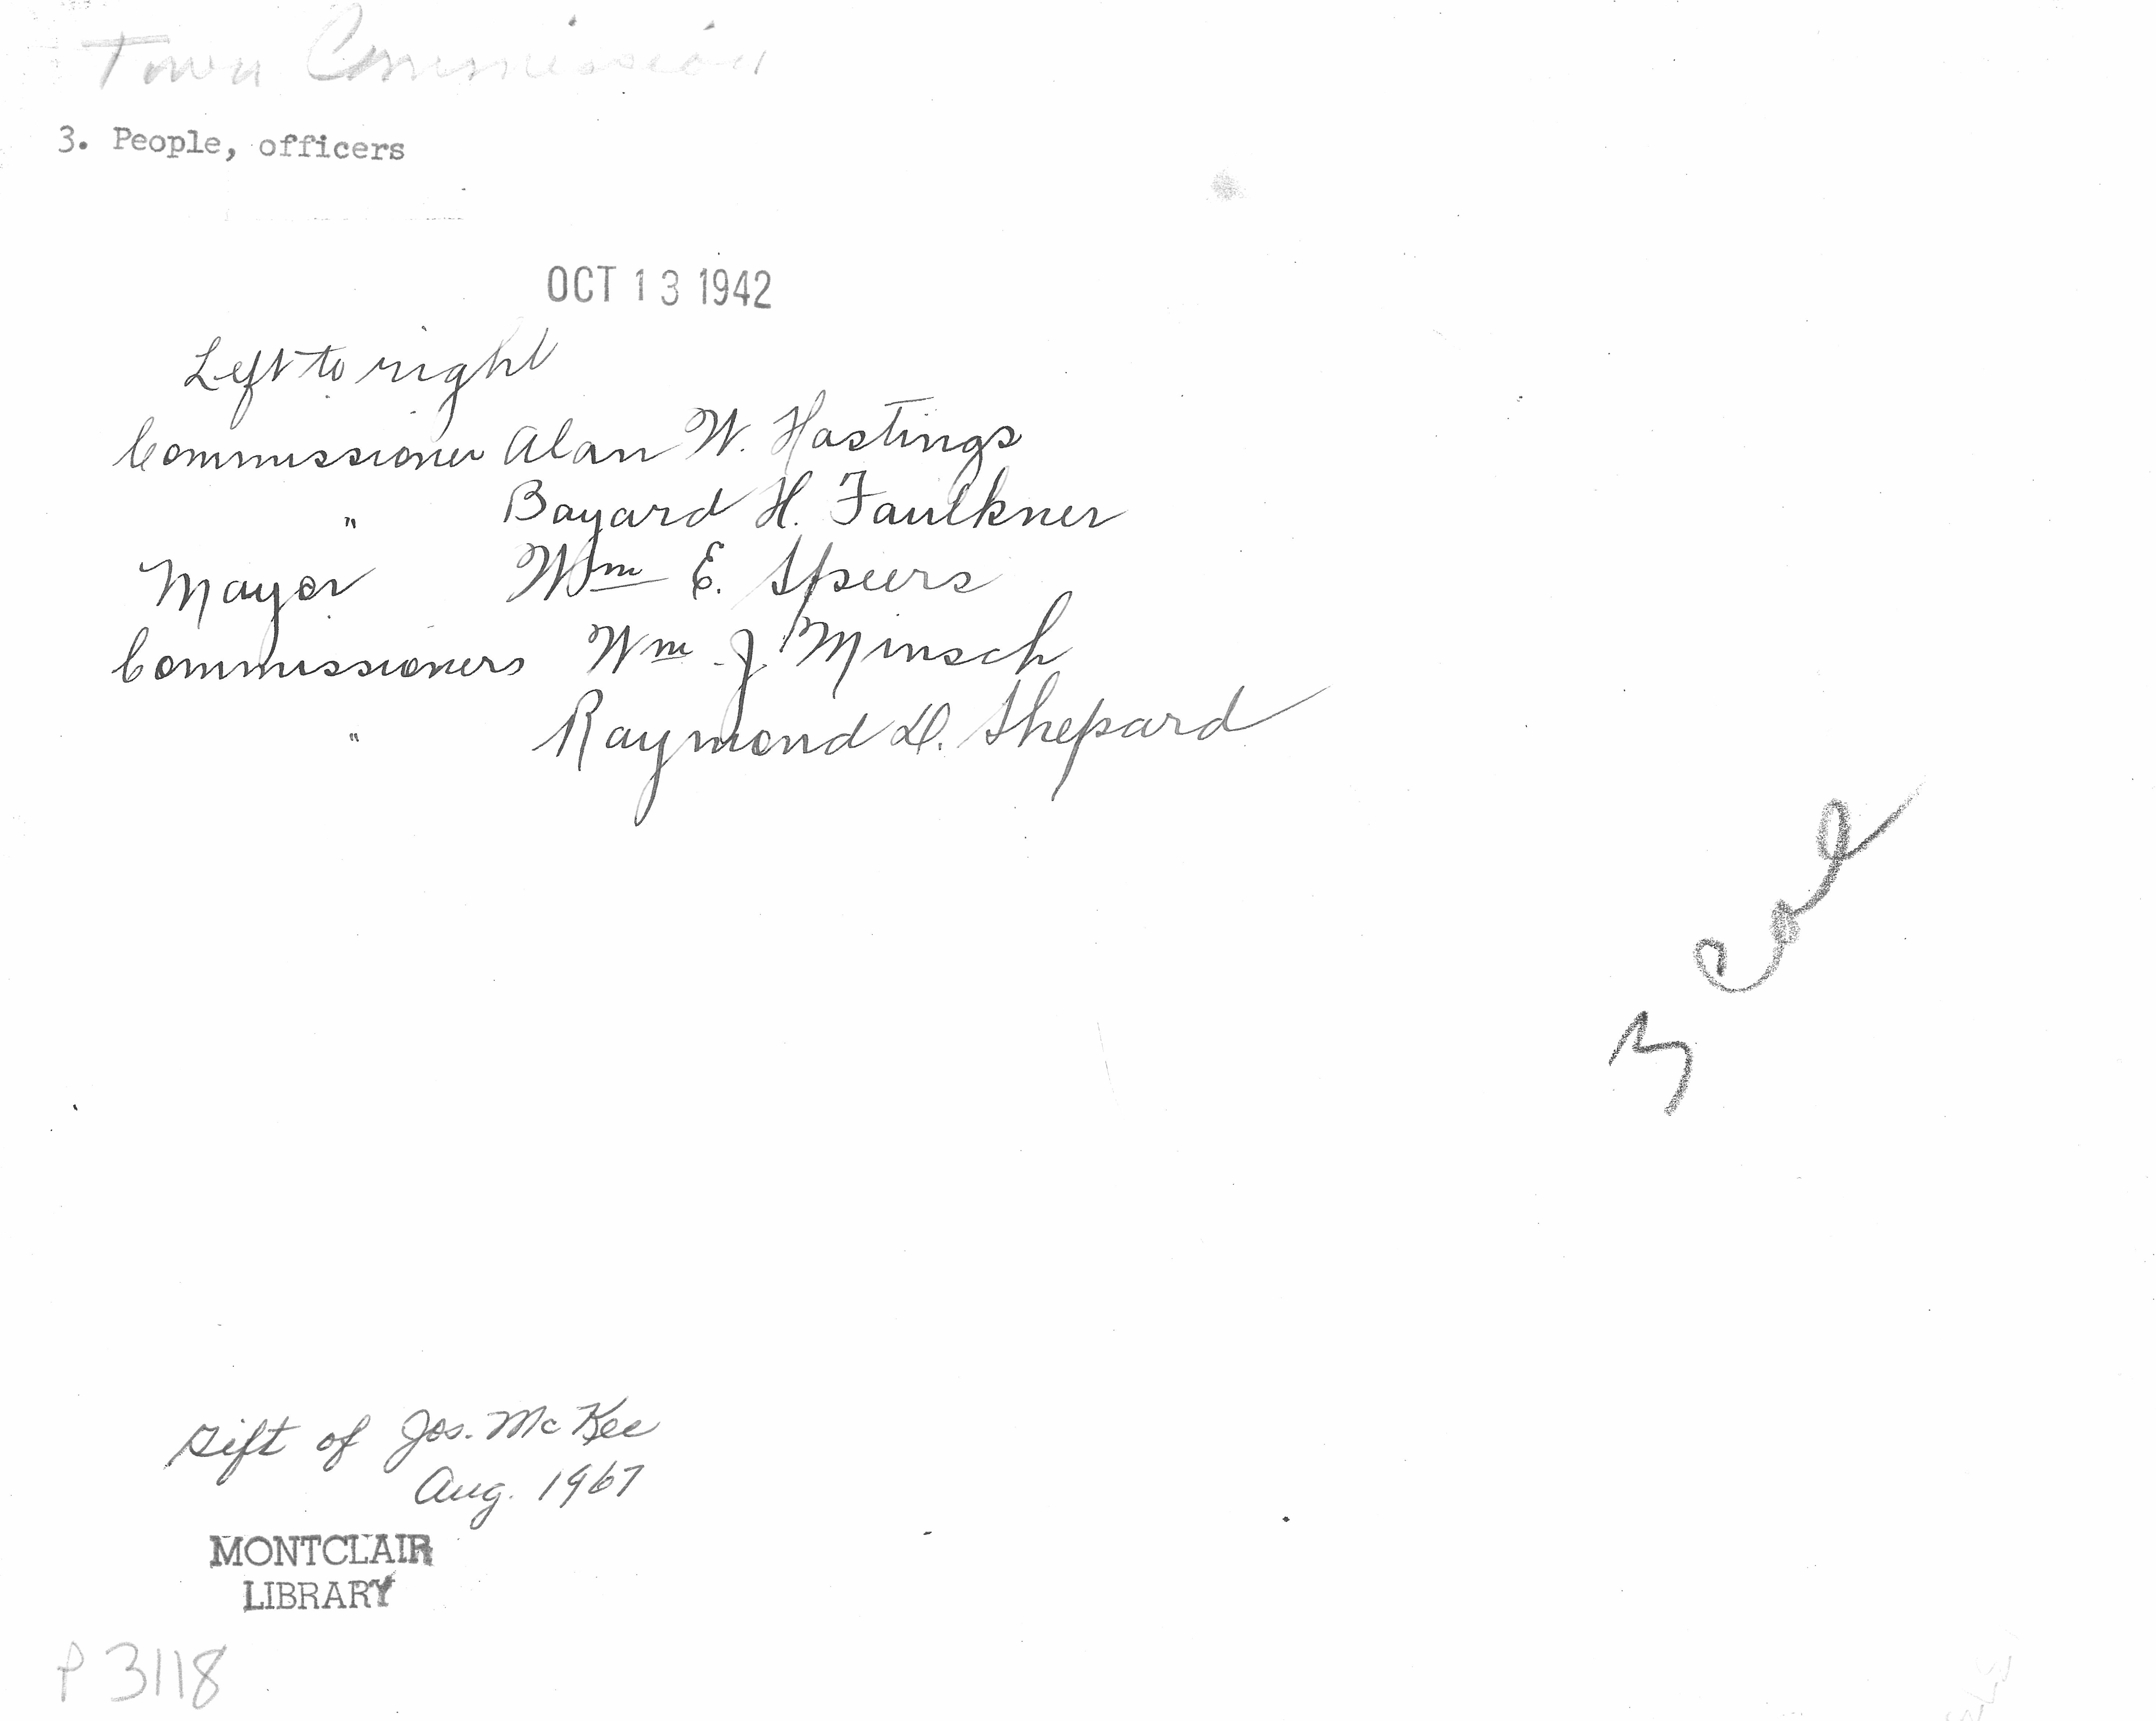 Town Commission
3. People, officers
OCT 13 1942
Left to right
Commissioner Alan W. Hastings
" Bayard H. Faulkner
Mayor Wm E. Speers
Commissioners Wm. J. Minsch
" Raymond D. Shepard
3 col
Gift of Jos. McKee
Aug. 1967
MONTCLAIR
LIBRARY
P 3118